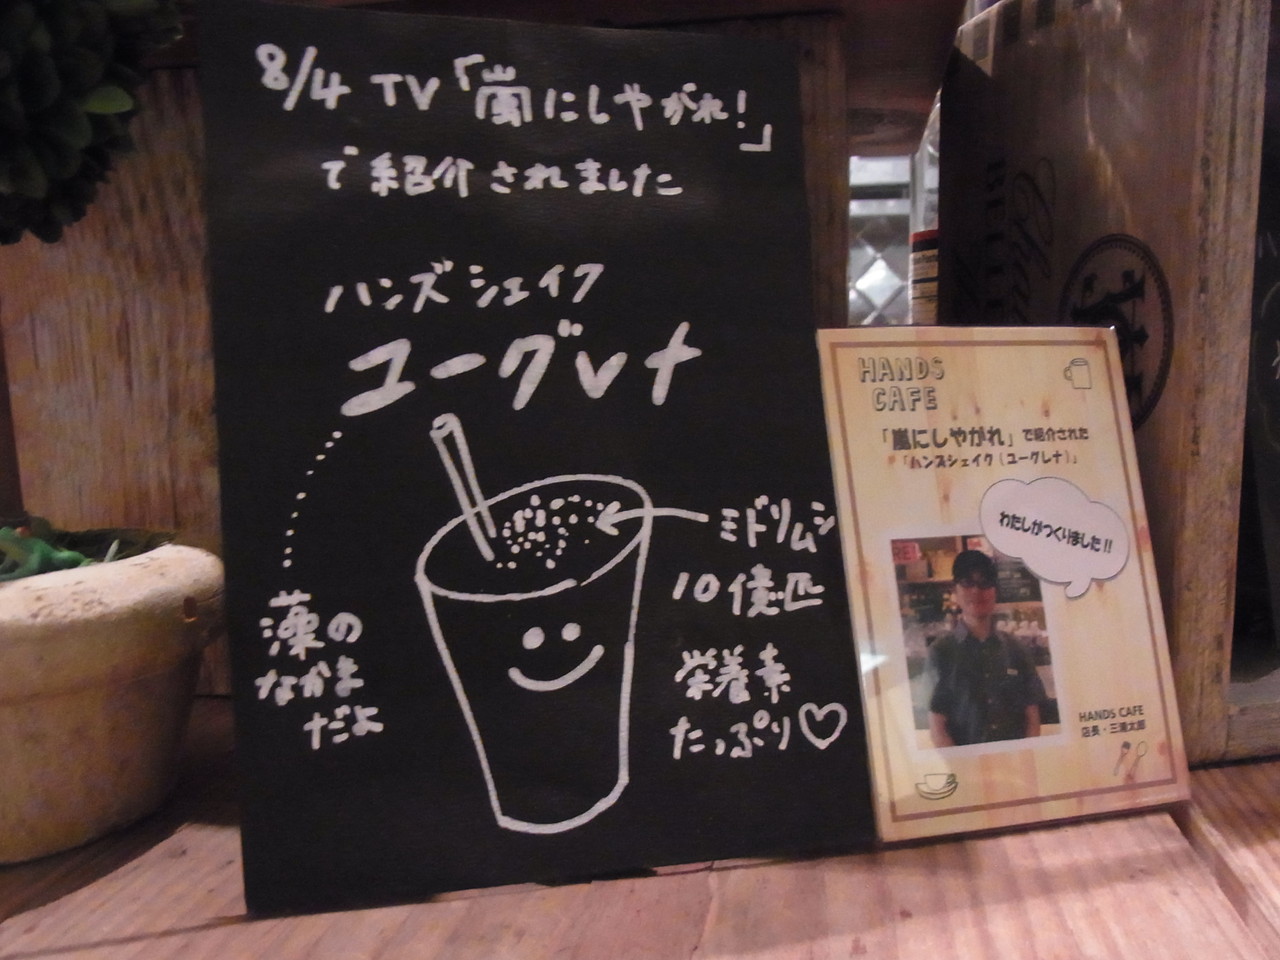 8/4 TV「嵐にしやがれ!」
で紹介されました
ハンズシェイク
ユーグレナ
藻の
なかま
だよ
ミドリムシ
10億匹
栄養素
たっぷり♡
HANDS
CAFE
「嵐にしやがれ」で紹介された
「ハンズシェイク(ユーグレナ)」
わたしがつくりました!!
HANDS CAFE
店長・三浦太郎